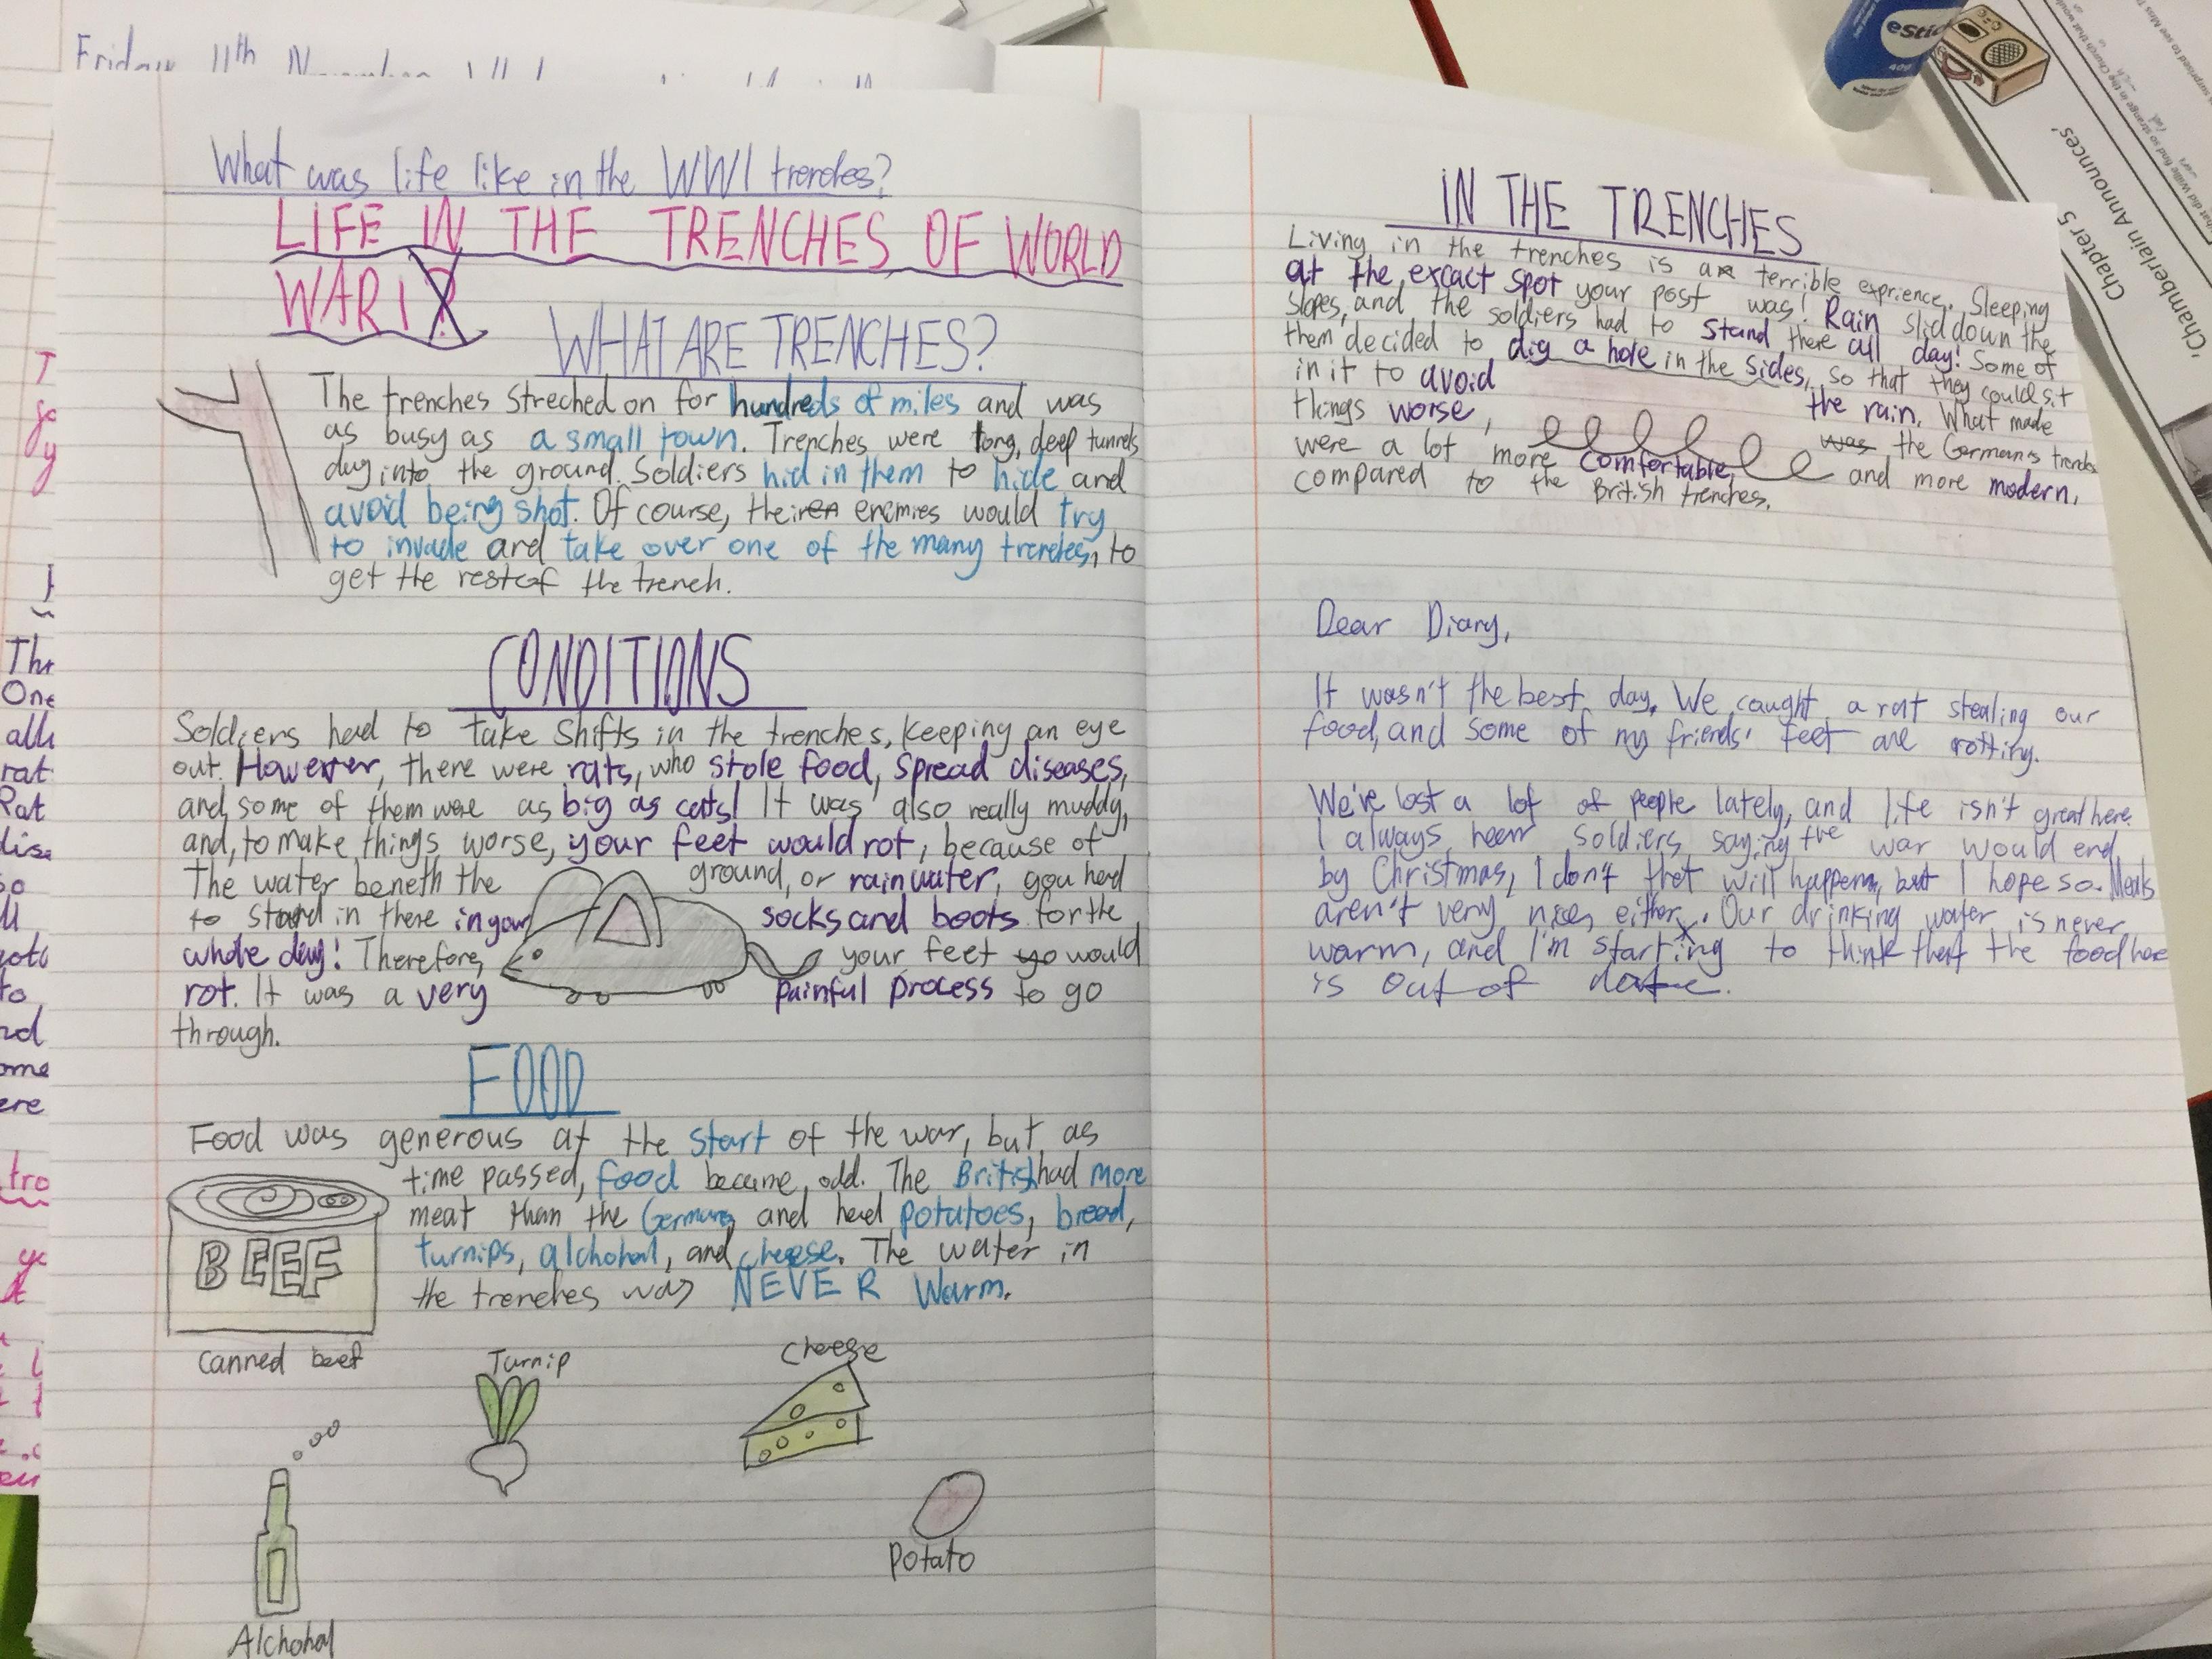 Friday 11th November
What was life like in the WW1 trenches?
LIFE IN THE TRENCHES OF WORLD
WAR 1
WHAT ARE TRENCHES?
The trenches streched on for hundreds of miles and was
as busy as a small town. Trenches were long, deep tunnels
dug into the ground. Soldiers hid in them to hide and
avoid being shot. Of course, their enemies would try
to invade and take over one of the many trenches, to
get the rest of the trench.
CONDITIONS
Soldiers had to take shifts in the trenches, keeping an eye
out. However, there were rats, who stole food, spread diseases,
and, some of them were as big as cats! It was also really muddy,
and, to make things worse, your feet would rot, because of
The water beneth the ground, or rainwater, you had
to stand in there in your socks and boots for the
whole day! Therefore, your feet would
rot. It was a very painful process to go
through.
FOOD
Food was generous at the start of the war, but as
time passed, food became odd. The British had more
meat than the Germans and had potatoes, bread,
turnips, alchohal, and cheese. The water in
the trenches was NEVER warm.
BEEF
Canned beef
Turnip
Cheese
Potato
Alchohal
IN THE TRENCHES
Living in the trenches is a terrible exprience. Sleeping
at the excact spot your post was! Rain slid down the
slopes, and the soldiers had to stand there all day! Some of
them decided to dig a hole in the sides, so that they could sit
in it to avoid the rain. What made
things worse, was the Germans trenches
were a lot more comfortable, and more modern,
compared to the British trenches.
Dear Diary,
It wasn't the best day. We caught a rat stealing our
food, and some of my friends' feet are rotting.
We've lost a lot of people lately, and life isn't great here.
I always hear soldiers saying the war would end
by Christmas, I don't that will happen, but I hope so. Meals
aren't very nice, either. Our drinking water is never
warm, and I'm starting to think that the food here
is out of date.
eStic
40g
Chapter 5
'Chamberlain Announces'